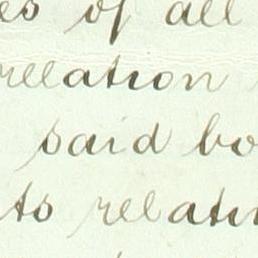 es of all
relation
said bo
ts relati